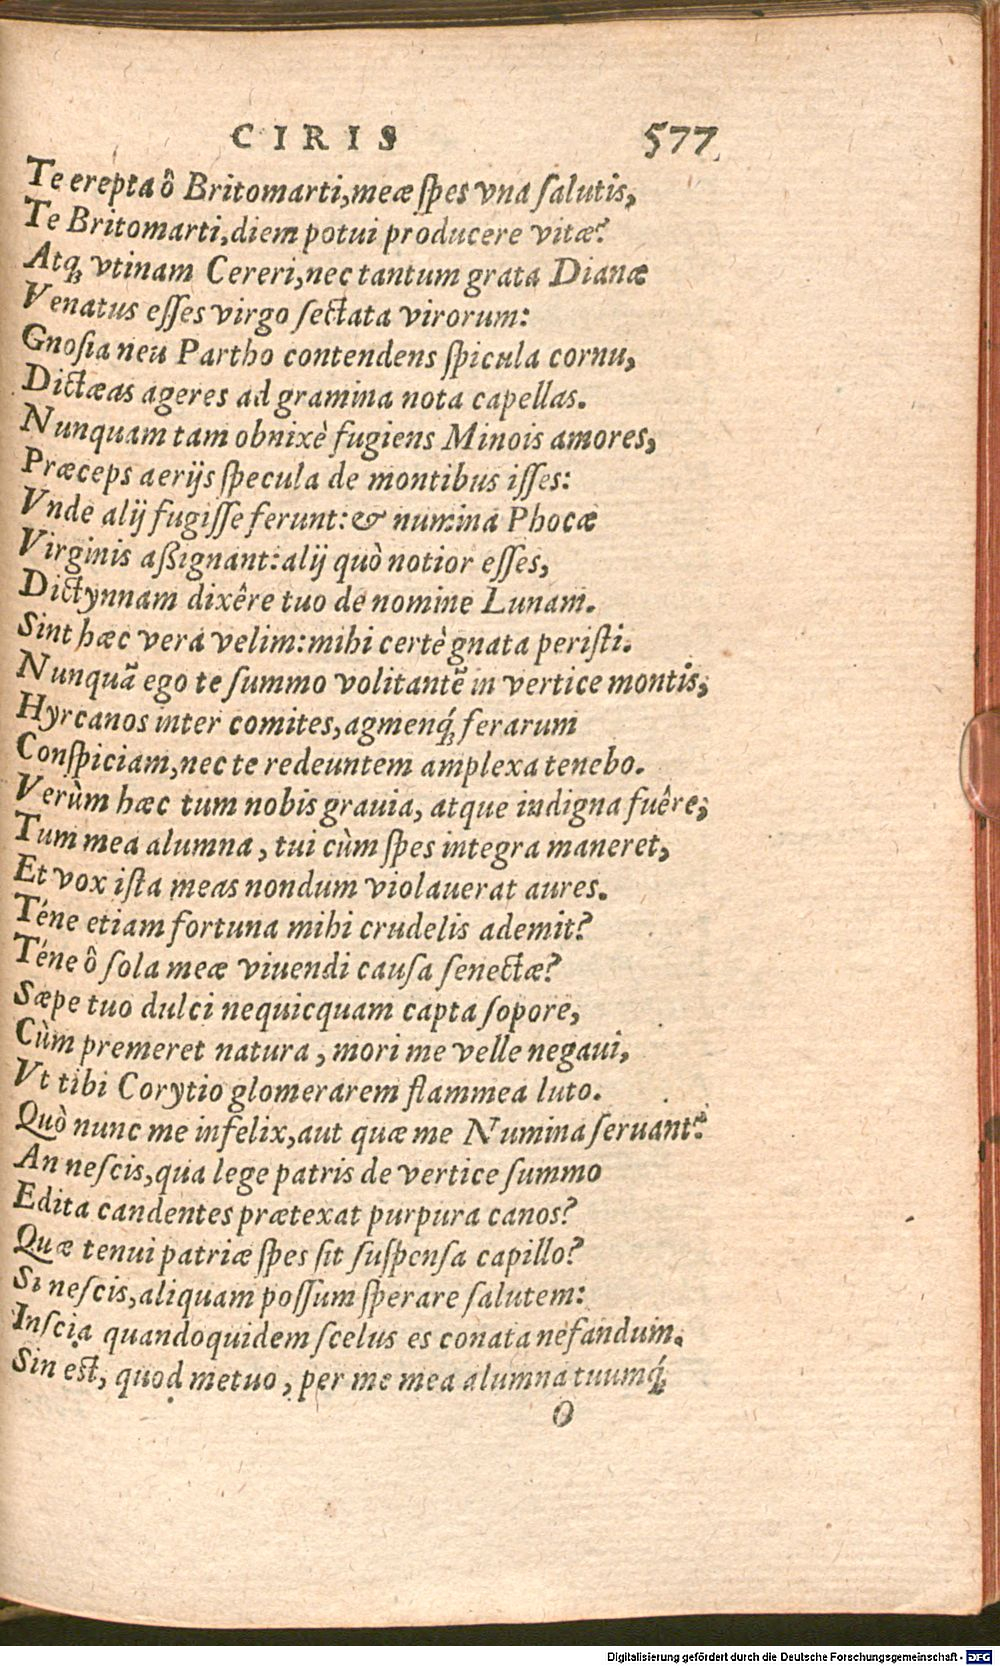 CIRIS 577
Te erepta ô Britomarti, meæ ſpes vna ſalutis,
Te Britomarti, diem potui producere vitæ?
Atq; vtinam Cereri, nec tantum grata Dianæ
Venatus eſſes virgo ſectata virorum:
Gnoſia neu Partho contendens ſpicula cornu,
Dictæas ageres ad gramina nota capellas.
Nunquam tam obnixè fugiens Minois amores,
Præceps aerijs ſpecula de montibus iſſes:
Vnde alij fugiſſe ferunt: & numina Phocæ
Virginis aßignant: alij quò notior eſſes,
Dictynnam dixêre tuo de nomine Lunam.
Sint hæc vera velim: mihi certè gnata periſti.
Nunquã ego te ſummo volitantẽ in vertice montis,
Hyrcanos inter comites, agmenq́; ferarum
Conſpiciam, nec te redeuntem amplexa tenebo.
Verùm hæc tum nobis grauia, atque indigna fuêre,
Tum mea alumna, tui cùm ſpes integra maneret,
Et vox iſta meas nondum violauerat aures.
Téne etiam fortuna mihi crudelis ademit?
Téne ô ſola meæ viuendi cauſa ſenectæ?
Sæpe tuo dulci nequicquam capta ſopore,
Cùm premeret natura, mori me velle negaui,
Vt tibi Corytio glomerarem flammea luto.
Quò nunc me infelix, aut quæ me Numina ſeruant?
An neſcis, qua lege patris de vertice ſummo
Edita candentes prætexat purpura canos?
Quæ tenui patriæ ſpes ſit ſuſpenſa capillo?
Si neſcis, aliquam poſſum ſperare ſalutem:
Inſcia quandoquidem ſcelus es conata nefandum.
Sin eſt, quod metuo, per me mea alumna tuumq́;
O
Digitalisierung gefördert durch die Deutsche Forschungsgemeinschaft - DFG